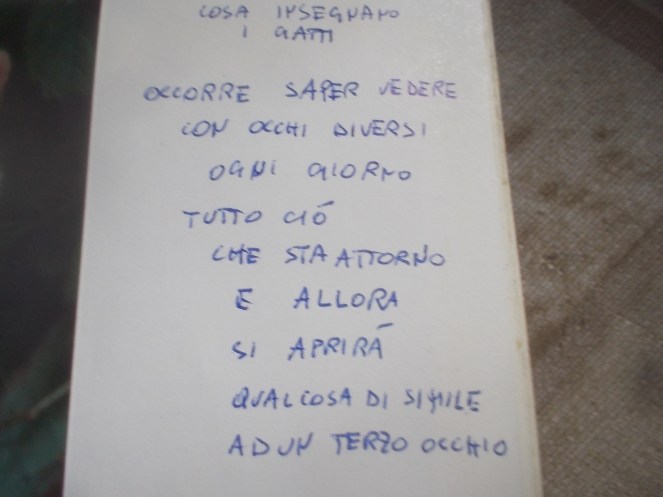 COSA INSEGNANO
I GATTI
OCCORRE SAPER VEDERE
CON OCCHI DIVERSI
OGNI GIORNO
TUTTO CIÓ
CHE STA ATTORNO
E ALLORA
SI APRIRÁ
QUALCOSA DI SIMILE
AD UN TERZO OCCHIO